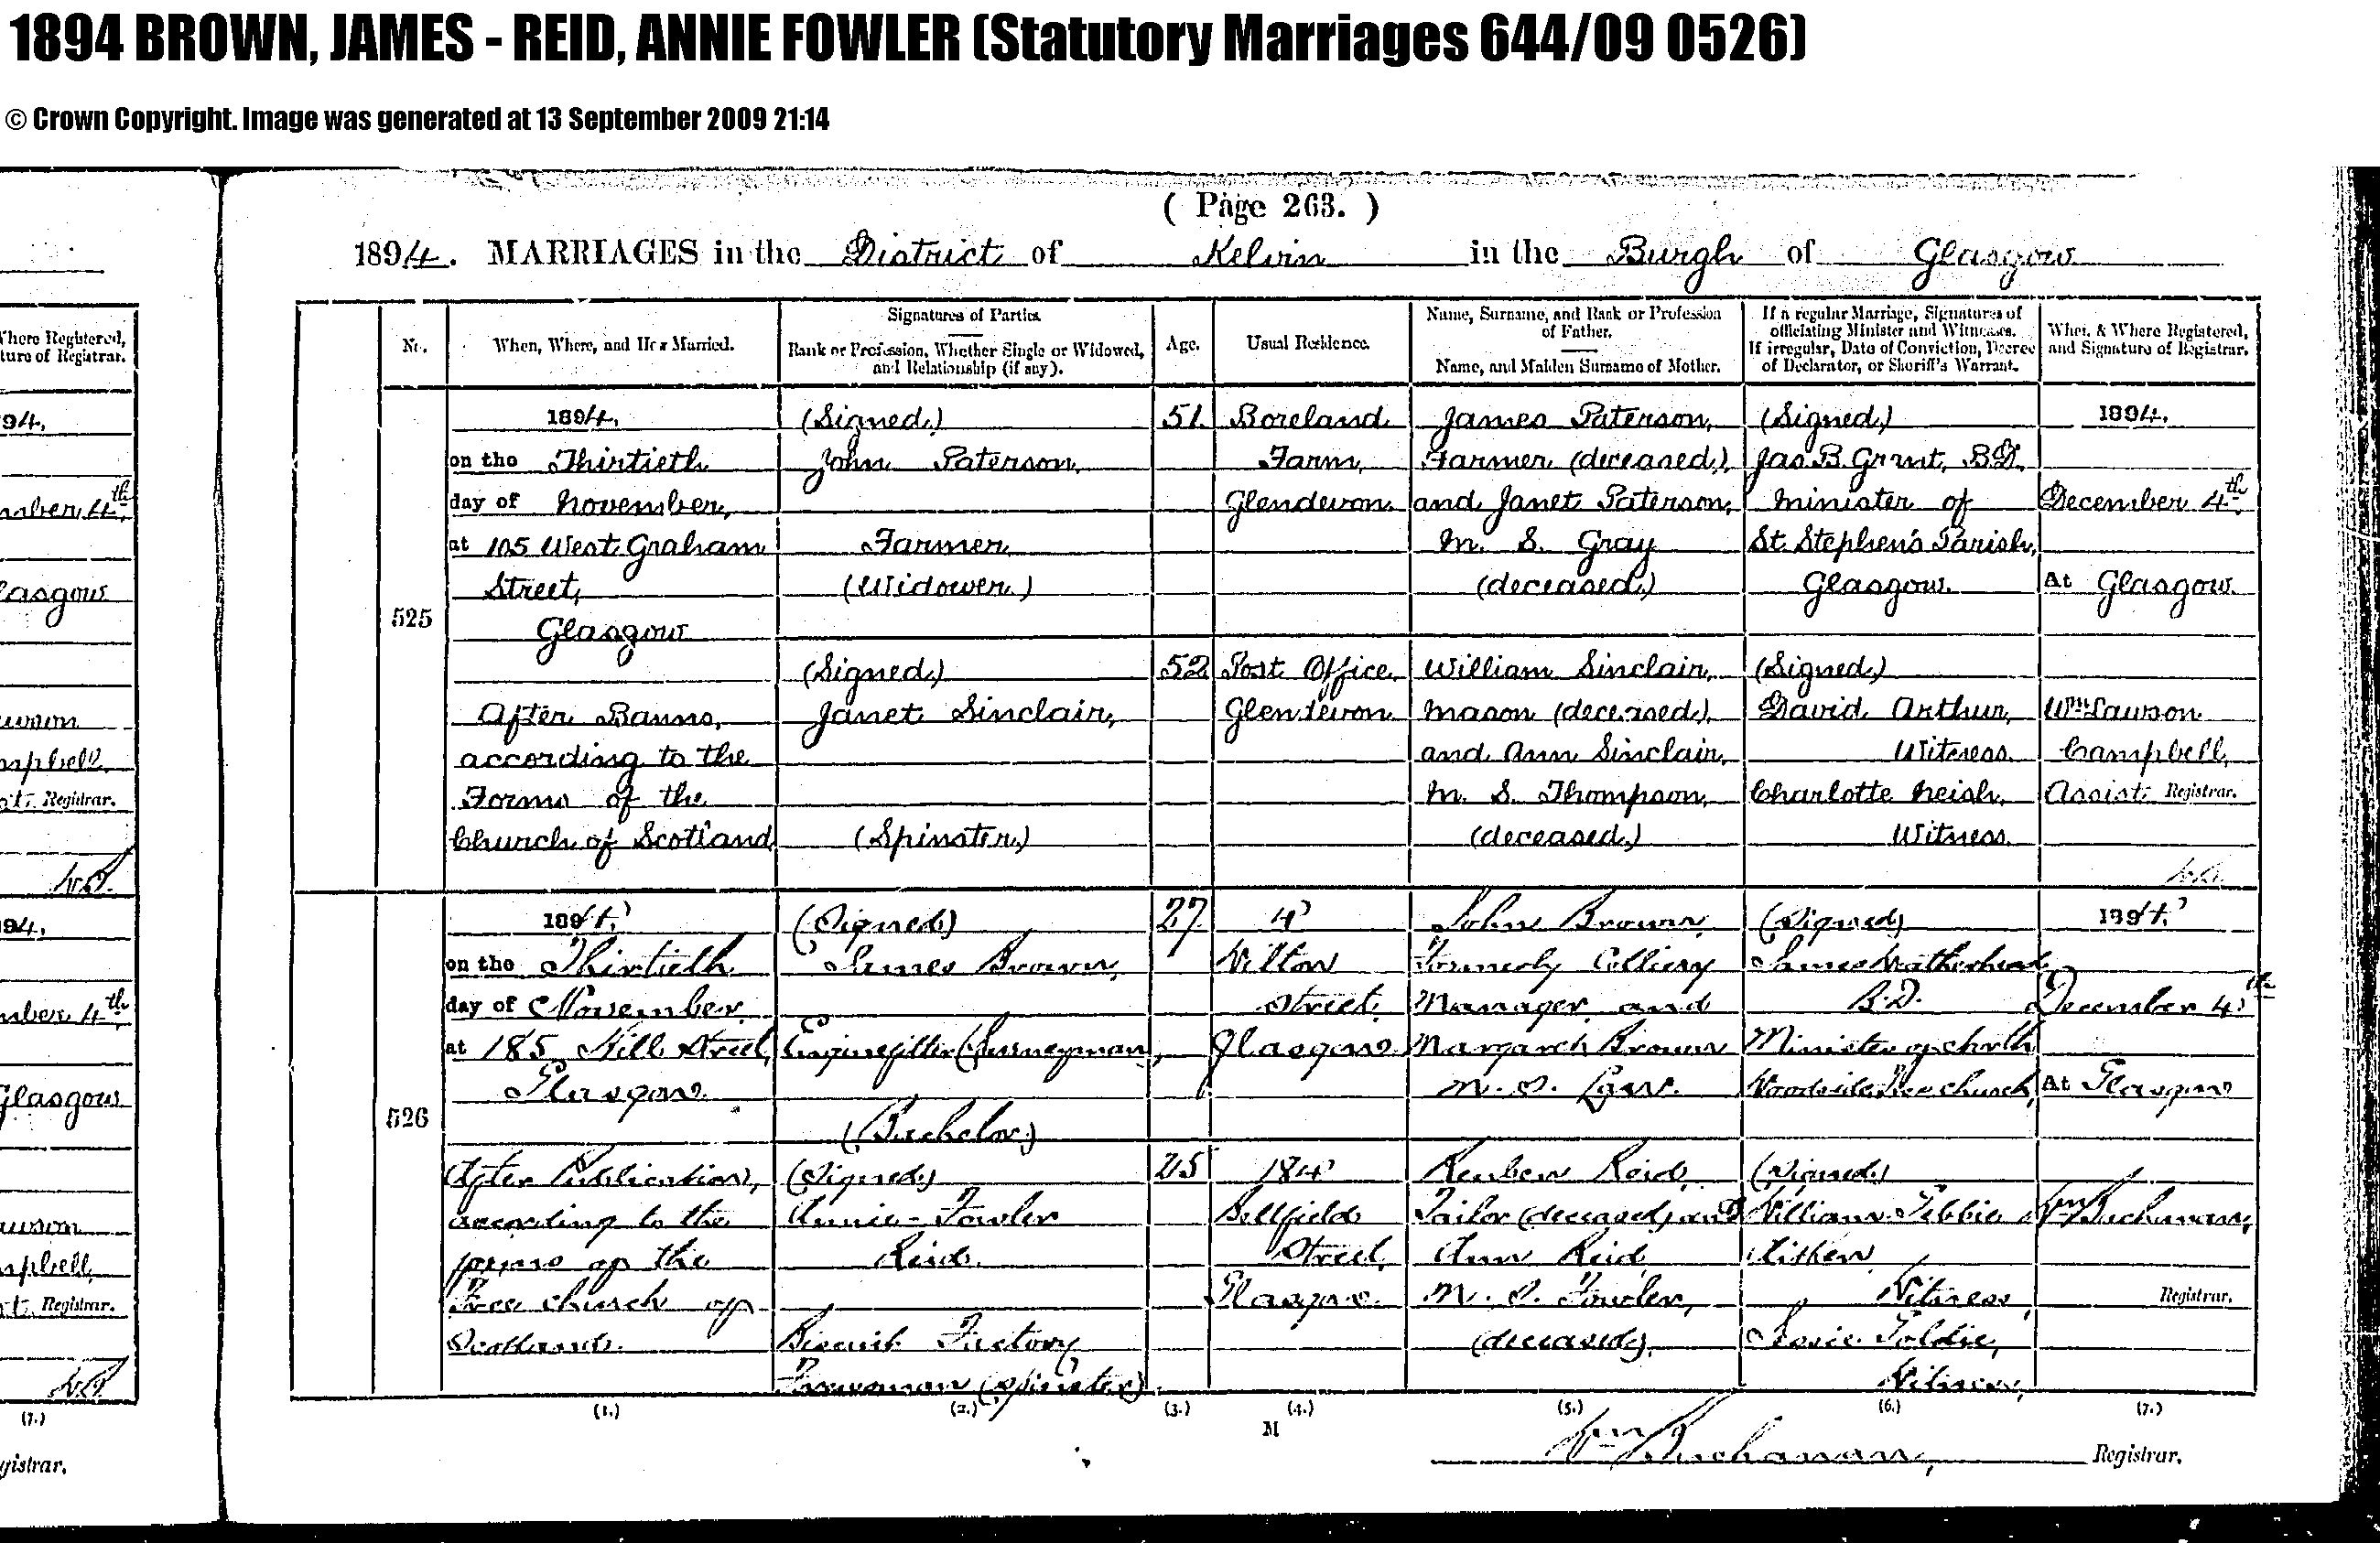 1894 BROWN, JAMES - REID, ANNIE FOWLER (Statutory Marriages 644/09 0526)
© Crown Copyright. Image was generated at 13 September 2009 21:14
( Page 263. )
1894. MARRIAGES in the District of Kelvin in the Burgh of Glasgow
No.
When, Where, and How Married.
Signatures of Parties.
Rank or Profession, Whether Single or Widowed,
and Relationship (if any).
Age.
Usual Residence.
Name, Surname, and Rank or Profession
of Father.
Name, and Maiden Surname of Mother.
If a regular Marriage, Signatures of
officiating Minister and Witnesses.
If irregular, Date of Conviction, Decree
of Declarator, or Sheriff's Warrant.
When & Where Registered,
and Signature of Registrar.
525
1894.
on the Thirtieth
day of November,
at 105 West Graham
Street,
Glasgow
After Banns,
according to the
Forms of the
Church of Scotland
(Signed)
John Paterson,
Farmer,
(Widower)
(Signed)
Janet Sinclair,
(Spinster)
51
52
Boreland
Farm,
Glendevon
Post Office,
Glendevon
James Paterson,
Farmer (deceased),
and Janet Paterson,
M. S. Gray
(deceased)
William Sinclair,
Mason (deceased),
and Ann Sinclair,
M. S. Thompson,
(deceased)
(Signed)
Jas. B. Grant, B.D.
Minister of
St. Stephen's Parish,
Glasgow.
(Signed)
David Arthur,
Witness.
Charlotte Neish,
Witness.
1894.
December 4th
At Glasgow.
Wm Lawson
Campbell,
Assist. Registrar.
526
1894.
on the Thirtieth
day of November.
at 185 Hill Street,
Glasgow.
After Publication,
according to the
forms of the
Free Church of
Scotland.
(Signed)
James Brown,
Enginefitter (Journeyman),
(Bachelor)
(Signed)
Annie Fowler
Reid.
Biscuit Factory
(Spinster)
27
25
4
Wilton
Street,
Glasgow.
184
Bellfield
Street,
Glasgow.
John Brown,
Formerly Colliery
Manager, and
Margaret Brown
M. S. Law.
Reuben Reid,
Tailor (deceased) and
Ann Reid,
M. S. Fowler,
(deceased).
(Signed)
James Weatherhead
B.D.
Minister of
Woodside Free Church,
(Signed)
William Tebbie
Aitken
Witness,
Jessie Goldie,
Witness,
1894.
December 4th
At Glasgow
Wm Buchanan,
Registrar.
(1.) (2.) (3.) (4.) (5.) (6.) (7.)
M
Wm Buchanan, Registrar.